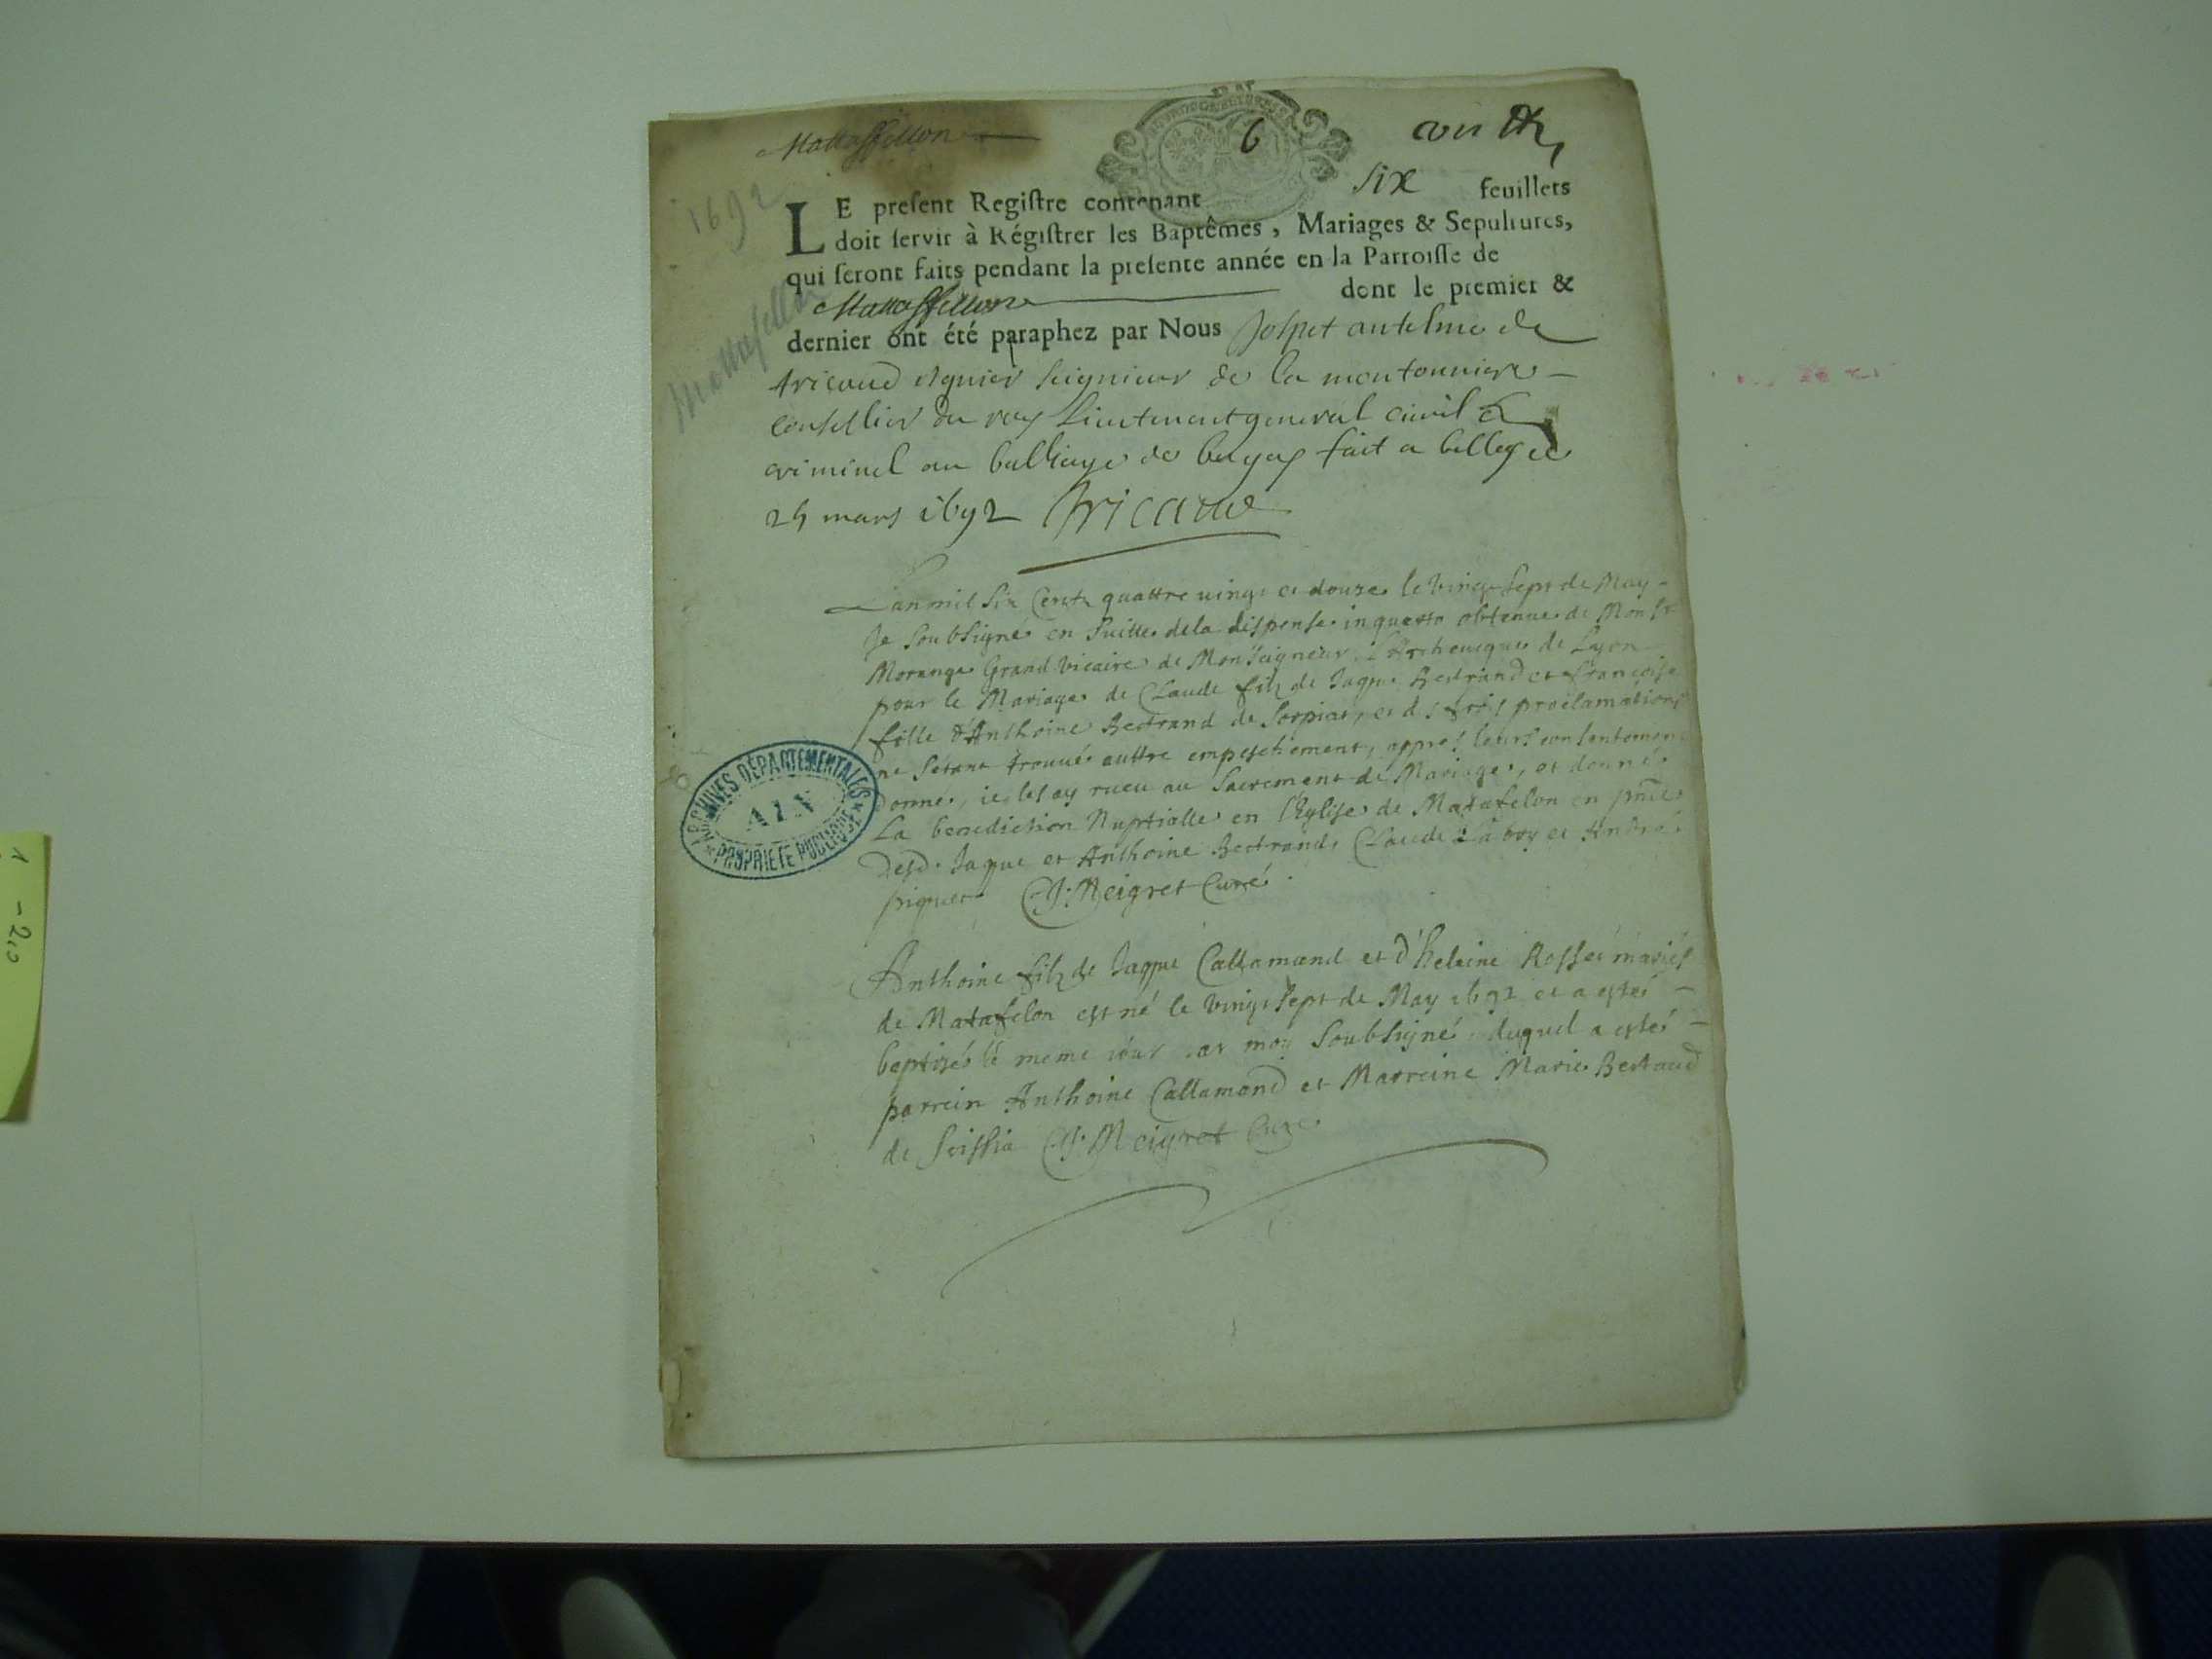 Mattaffellon
6
six feuillets
1692
LE present Registre contenant
doit servir à Régistrer les Baptêmes, Mariages & Sepultures,
qui seront faits pendant la presente année en la Parroisse de
Mattaffellon dont le premier &
Mattafellon
dernier ont été paraphez par Nous Jospet antelme de
tricaud seigneur de la montonniere
consellier du roy lieutenent general civil &
criminel au balliage de bugey fait a belley ce
25 mars 1692 Tricaud
L'an mil six cents quattre vingt et douze le vingt sept de May
Je soubsigné en suitte de la dispense in quarto obtenue de Monsr
Morange Grand Vicaire de Monseigneur L'Archeuesque de Lyon
pour le Mariage de Claude filz de Jaque Bertrand et Françoise
fille d'Anthoine Bertrand de Corpiat, et d trois proclamations
ne s'étant trouué auttre empeschement, appres leurs consentement
donné, ie les ay receu au Sacrement de Mariage, et donné
La benediction Nuptialle en l'Eglise de Matafelon en pnce
Desd. Jaque et Anthoine Bertrand, Claude Laboy et André
piquet C. J. Meigret Curé.
ARCHIVES DÉPARTEMENTALES
AIN
PROPRIÉTÉ PUBLIQUE
Anthoine filz de Jaque Callamand et d'heleine Rosset mariés
de Matafelon est né le vingt sept de May 1692 et a esté
baptizé le meme iour par moy Soubsigné, duquel a esté
parrein Anthoine Callamand et Marreine Marie Bertrand
de Seissia C. J. Meigret Curé
1 -2,0